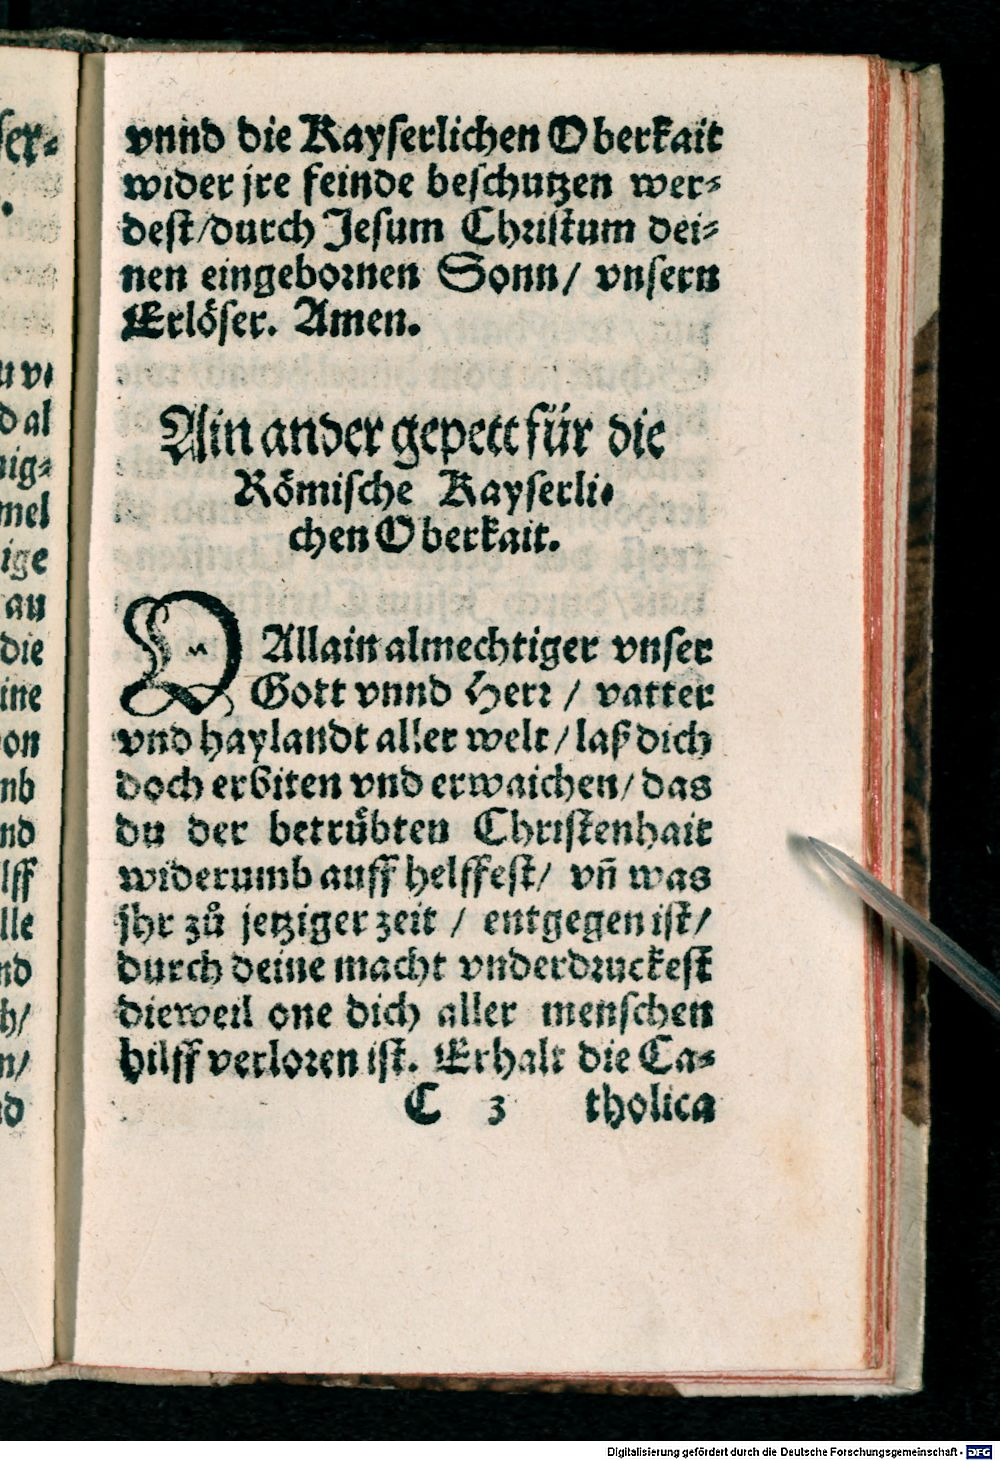 vnnd die Kayserlichen Oberkait
wider jre feinde beschutzen wer⸗
dest/durch Jesum Christum dei⸗
nen eingebornen Sonn/ vnsern
Erlöser. Amen.
Ain ander gepett für die
Römische Kayserli⸗
chen Oberkait.
O Allain almechtiger vnser
Gott vnnd Herr / vatter
vnd haylandt aller welt/laß dich
doch erbiten vnd erwaichen/das
du der betrübten Christenhait
widerumb auff helffest/ vn̄ was
jhr zů jetziger zeit / entgegen ist/
durch deine macht vnderdruckest
dieweil one dich aller menschen
hilff verloren ist. Erhalt die Ca⸗
C 3 tholica
Digitalisierung gefördert durch die Deutsche Forschungsgemeinschaft - DFG